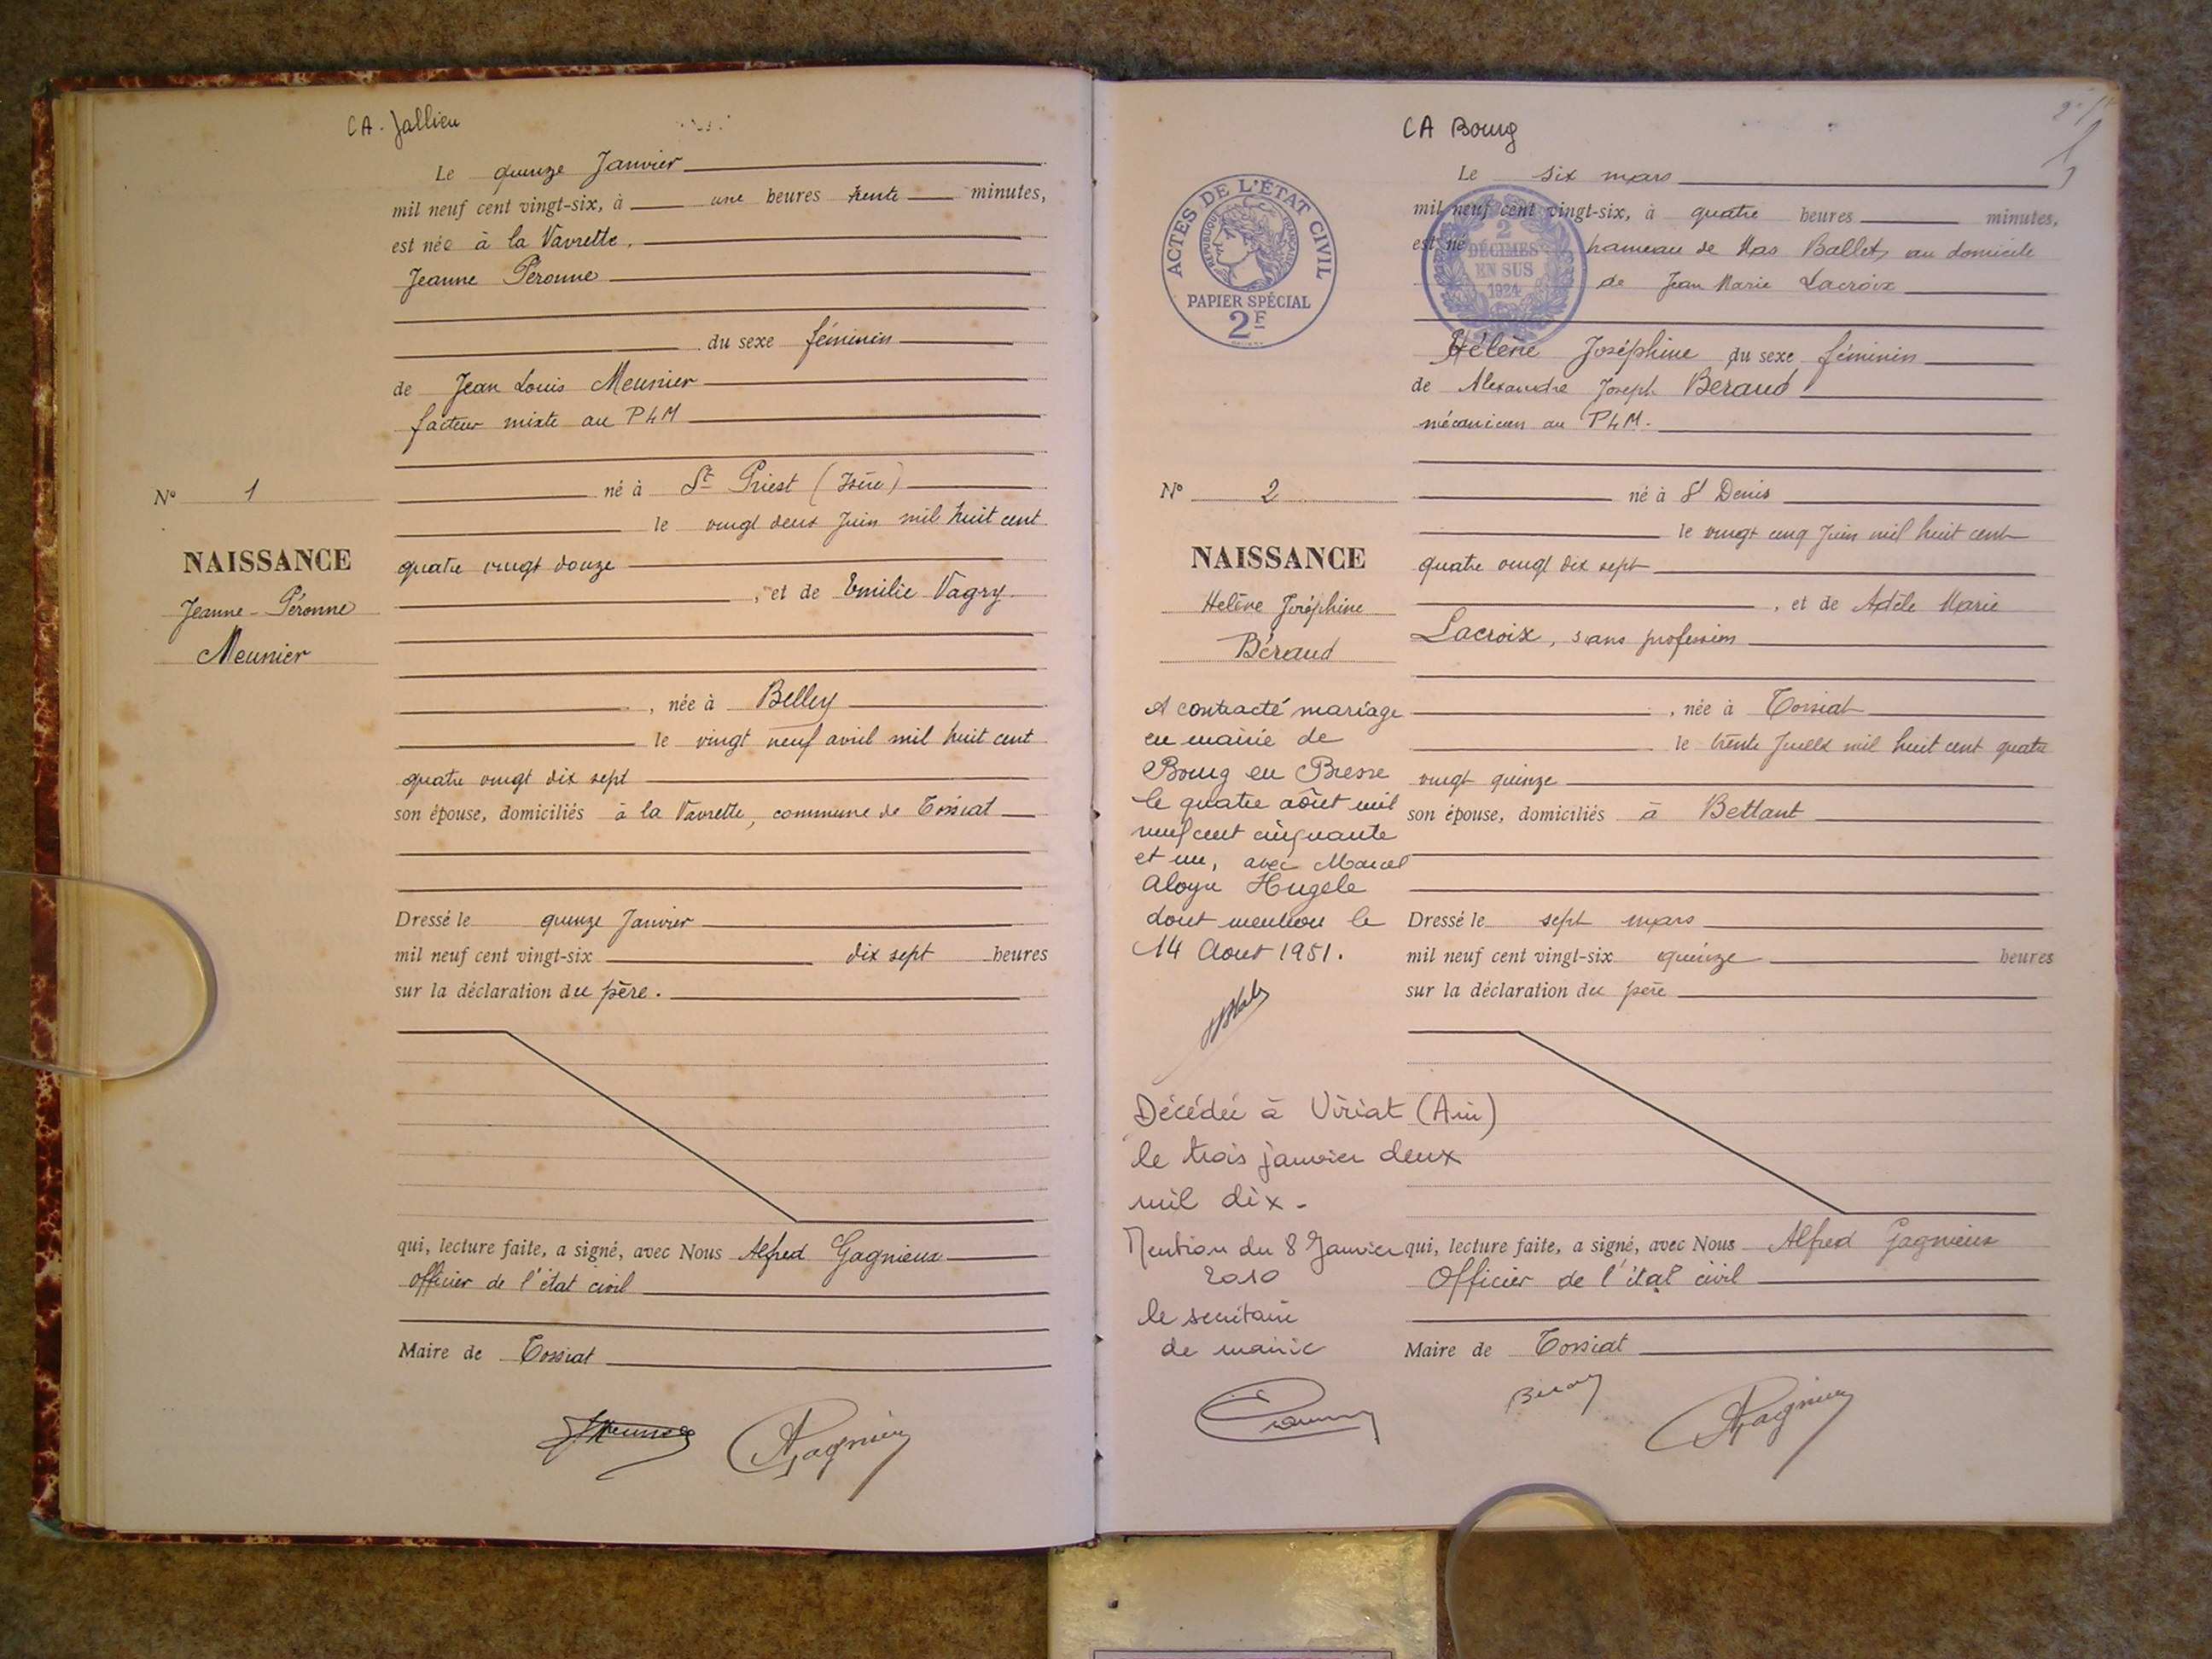 CA. Jallieu
Le quinze Janvier
mil neuf cent vingt-six, à une heures trente minutes,
est née à la Vavrette,
Jeanne Péronne
du sexe féminin
de Jean Louis Meunier
facteur mixte au PLM
né à St Priest (Isère)
le vingt deux Juin mil huit cent
quatre vingt douze
, et de Emilie Vagry
, née à Belley
le vingt neuf avril mil huit cent
quatre vingt dix sept
son épouse, domiciliés à la Vavrette, commune de Tossiat
Dressé le quinze Janvier
mil neuf cent vingt-six dix sept heures
sur la déclaration du père.
qui, lecture faite, a signé, avec Nous Alfred Gagnieux
officier de l'état civil
Maire de Tossiat
Nº 1
NAISSANCE
Jeanne-Péronne
Meunier
CA Bourg
ACTES DE L'ÉTAT CIVIL
RÉPUBLIQUE FRANÇAISE
PAPIER SPÉCIAL
2F
2
DÉCIMES
EN SUS
1924
Le six mars
mil neuf cent vingt-six, à quatre heures minutes,
est né hameau de Mas Ballet, au domicile
de Jean Marie Lacroix
Hélène Joséphine du sexe féminin
de Alexandre Joseph Beraud
mécanicien au PLM.
né à St Denis
le vingt cinq Juin mil huit cent
quatre vingt dix sept
, et de Adèle Marie
Lacroix, sans profession
, née à Tossiat
le trente Juillet mil huit cent quatre
vingt quinze
son épouse, domiciliés à Bettant
Dressé le sept mars
mil neuf cent vingt-six quinze heures
sur la déclaration du père
qui, lecture faite, a signé, avec Nous Alfred Gagnieux
Officier de l'état civil
Maire de Tossiat
Nº 2
NAISSANCE
Helène Joséphine
Béraud
A contracté mariage
en mairie de
Bourg en Bresse
le quatre août mil
neuf cent cinquante
et un, avec Marcel
Aloyse Hugele
dont mention le
14 Aout 1951.
Décédée à Viriat (Ain)
le trois janvier deux
mil dix -
Mention du 8 Janvier
2010
le secrétaire
de mairie